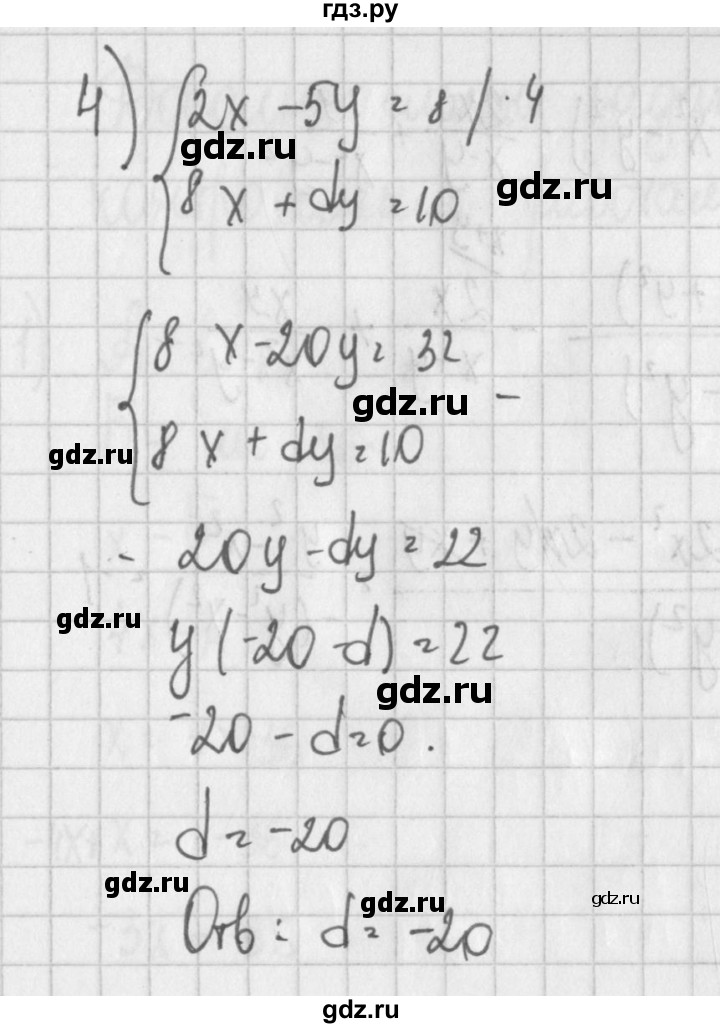 гдз.ру
4) { 2x - 5y = 8 / · 4
gdz.ru
gdz.ru
8x + dy = 10
{ 8x - 20y = 32
gdz.ru -
gdz.ru
8x + dy = 10
- 20y - dy = 22
gdz.ru
y (-20 - d) = 22
gdz.ru
-20 - d = 0.
d = -20
gdz.ru
gdz.ru
gdz.ru
Отв: d = -20
gdz.ru